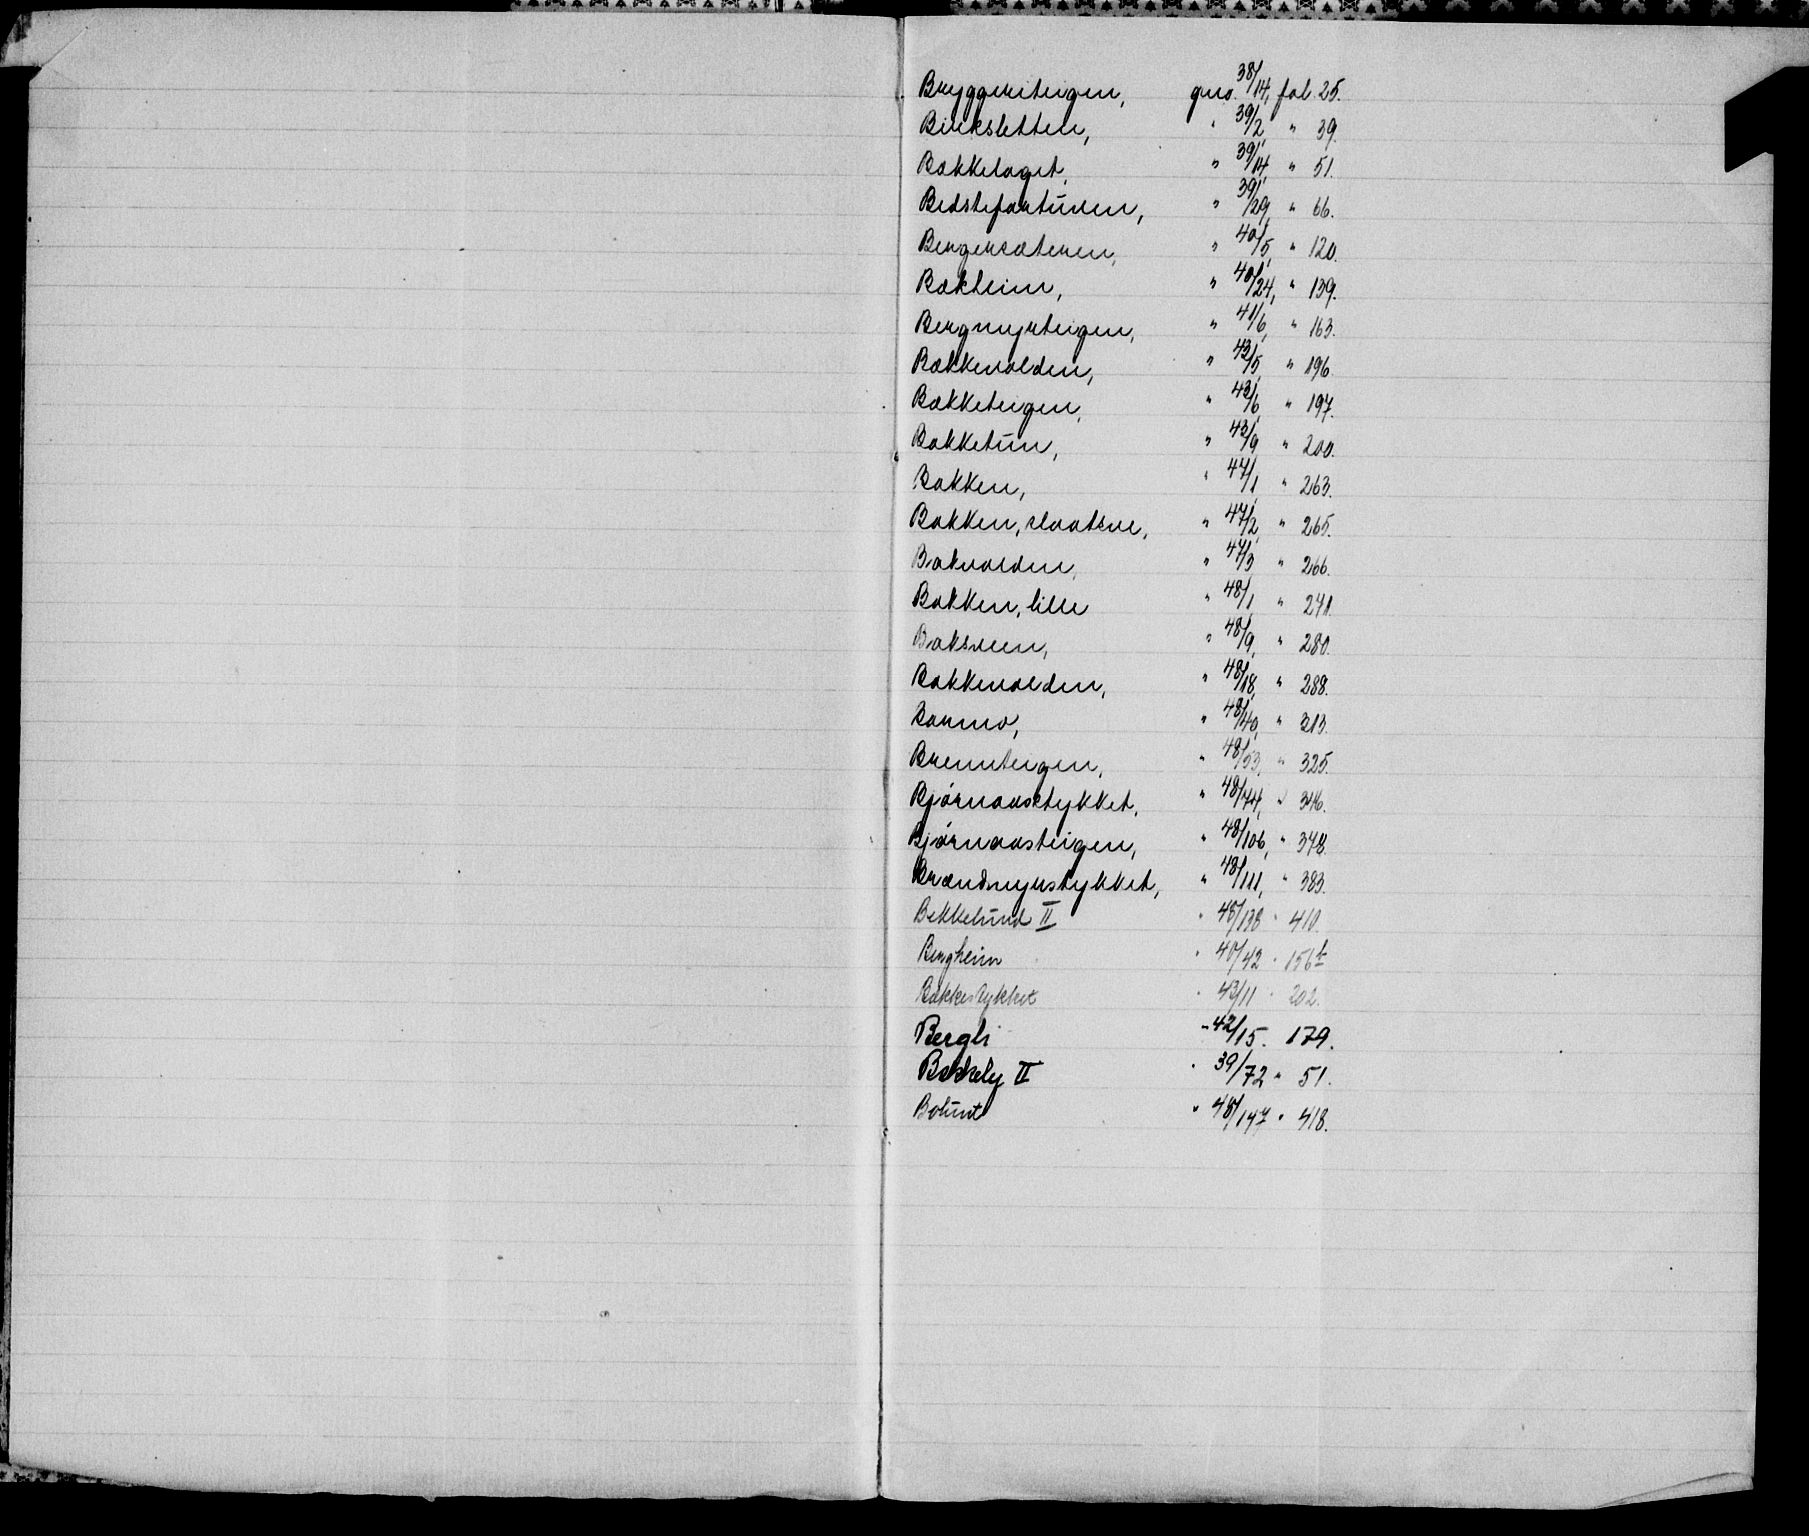 Bryggeriteigen, gno. 38/14, fol 25.
Birksletten, " 39/2, " 39.
Bakkehaget, " 39/14, " 51.
Bedstefarturen, " 39/29, " 66.
Bergersæteren, " 40/5, " 120.
Bækheim, " 40/24, " 139.
Bergmyrteigen, " 41/6, " 163.
Bækkevolden, " 43/5, " 196.
Bækketeigen, " 43/6, " 197.
Bakketun, " 43/9, " 200.
Bakken, " 47/1, " 263.
Bakken, slaatsve, " 47/2, " 265.
Bakvolden, " 47/3 " 266.
Bakken, lille " 48/1, " 271.
Baksveen, " 48/9, " 280.
Bakkevolden, " 48/18, " 288.
Barmo, " 48/40, " 313.
Brennteigen, " 48/53, " 325.
Bjørnaasstykket, " 48/74, " 346.
Bjørnaasteigen, " 48/106, " 378.
Brændmyrstykket, " 48/111, " 383.
Bekkelund II " 48/138 " 410.
Bergheim " 40/42 " 156b
Bakkestykket " 43/11 " 202.
Bergli " 42/15. 179.
Bækkely II " 39/72 " 51.
" 48/147 " 418.